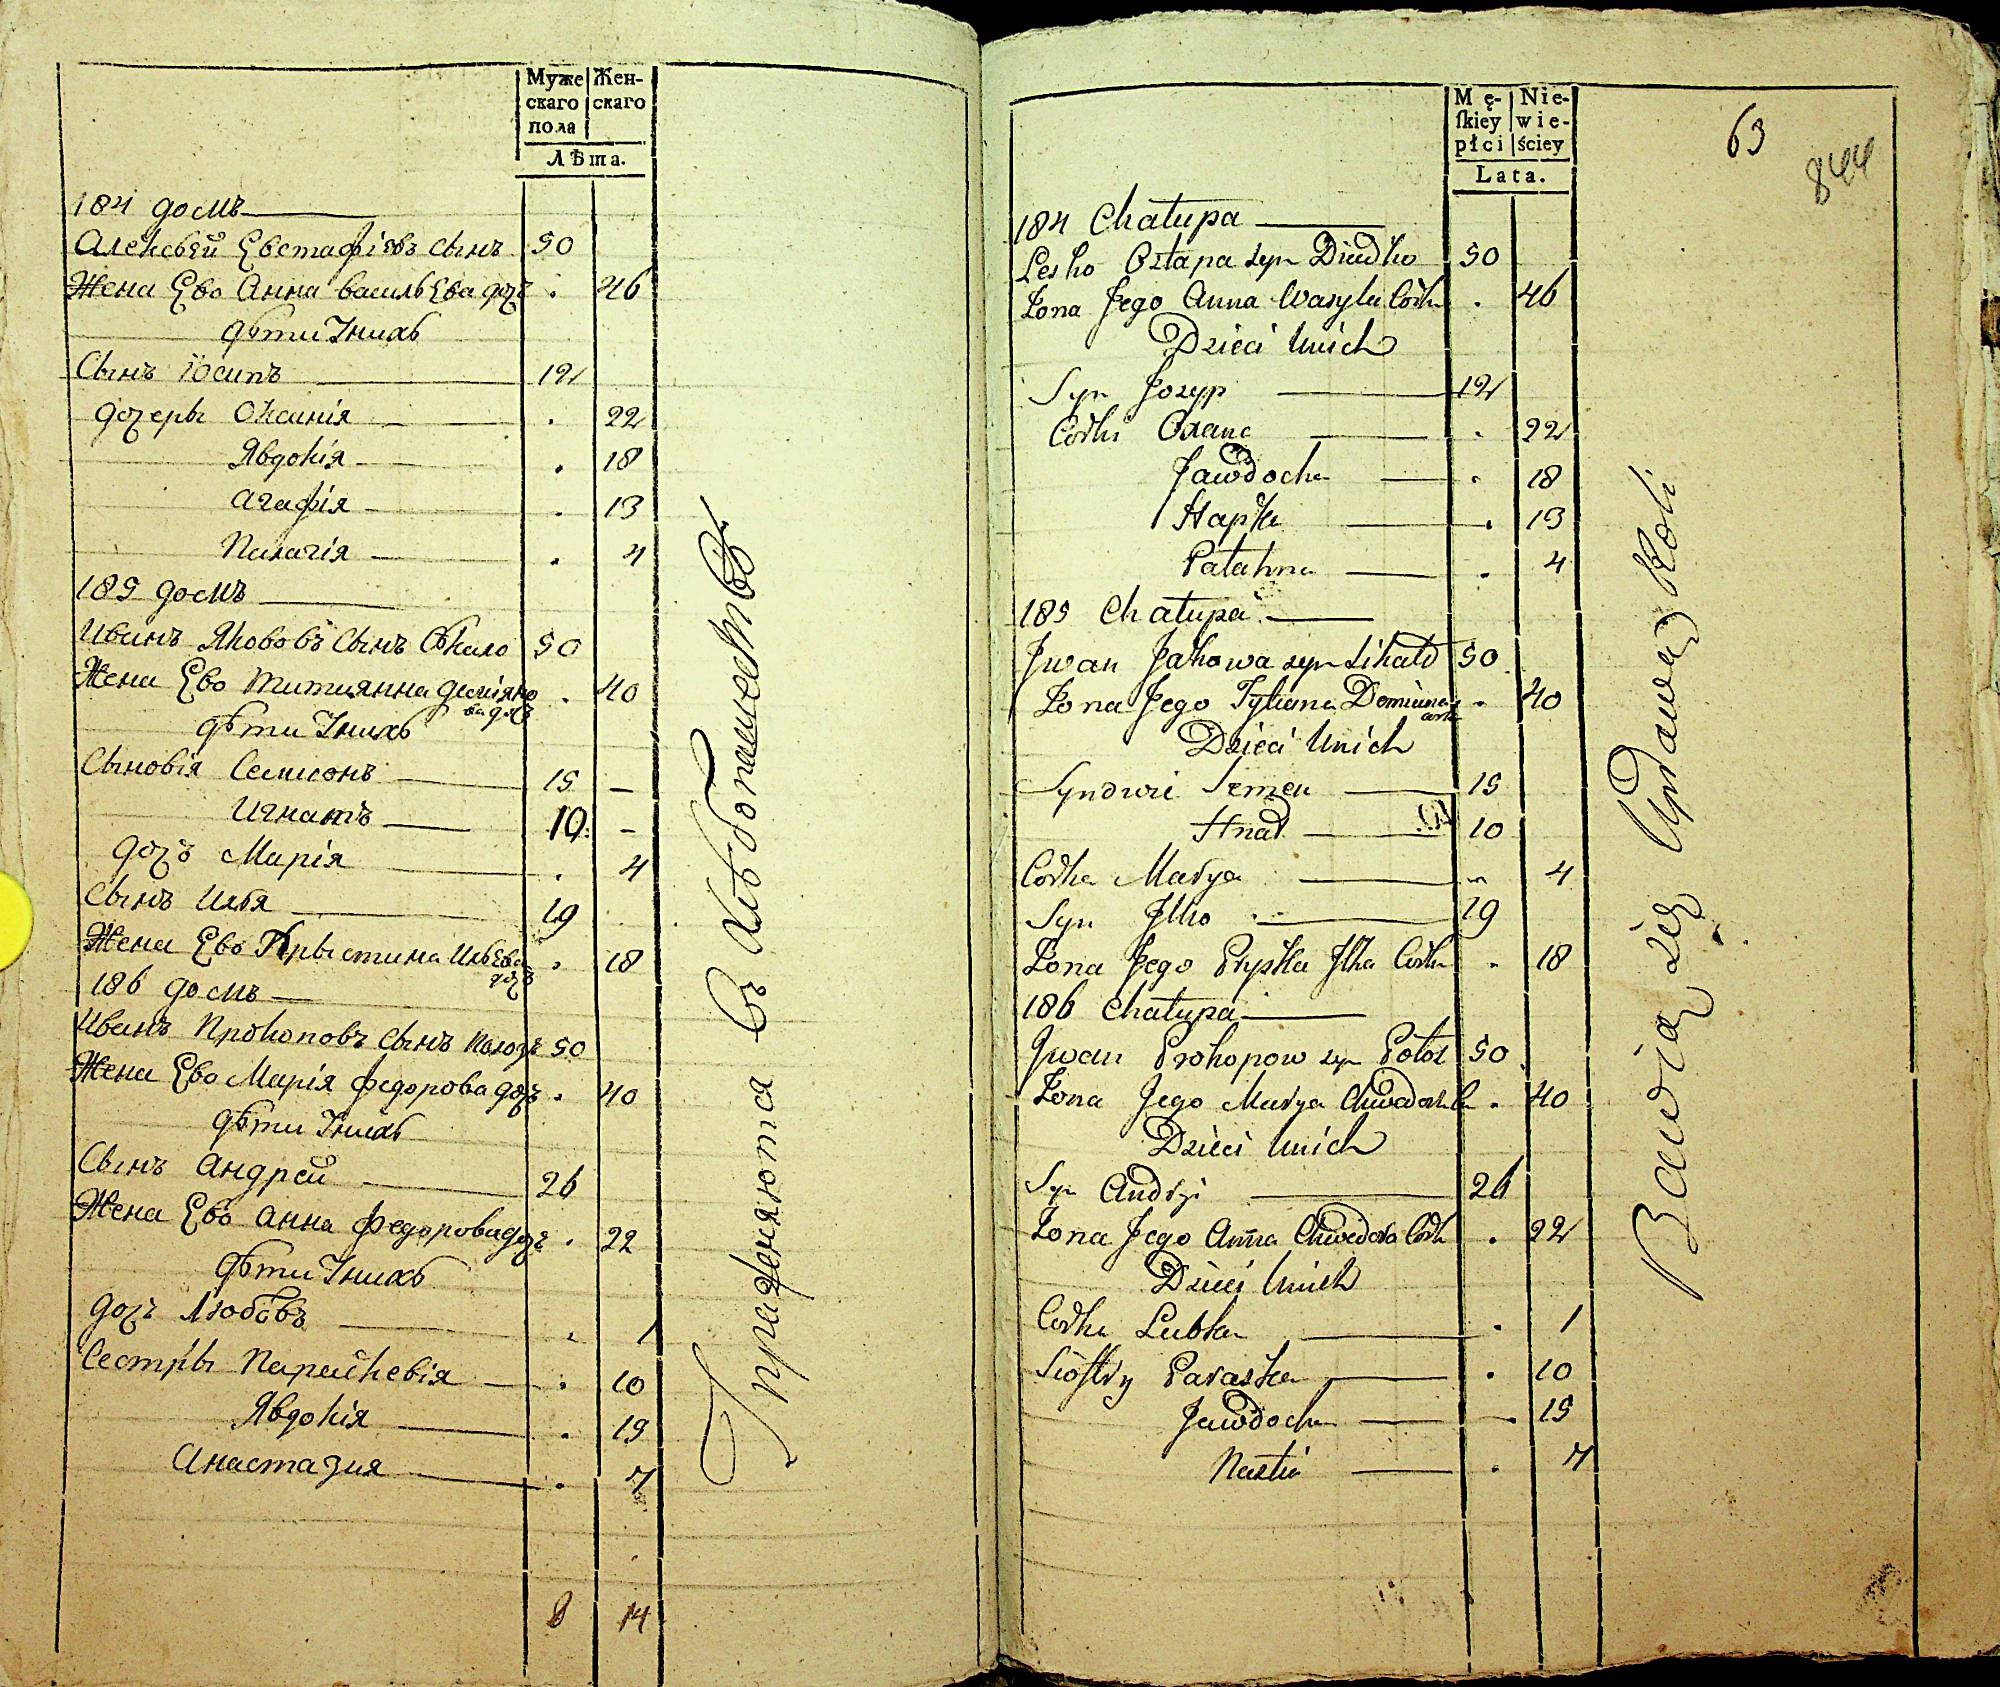 Муже
скаго
пола
Жен-
скаго
Лѣта.
184 домъ
Алексѣй Евстафіевъ сынъ 50
Жена Ево Анна васильева дочъ . 46
дѣти Унихъ
Сынъ Іосипъ 12
дочеры Оксинія . 22
Явдокія . 18
Агафія . 13
Пилагія . 4
185 домъ
Иванъ Якововъ сынъ 50
Жена Ево Титиянна деміяно . 40
ва дочъ
дѣти Унихъ
Сыновія Семионъ 15 –
Игнатъ 10 –
дочъ Марія . 4
Сынъ Илья 19
Жена Ево Прыстина Ильева . 18
дочъ
186 домъ
Иванъ Прокоповъ сынъ 50
Жена Ево Марія федорова дочъ . 40
дѣти Унихъ
Сынъ Андрей 26
Жена Ево Анна федорова дочъ . 22
дѣти Унихъ
дочъ Любовъ . 1
Сестры Парискевія . 10
Явдокія . 15
Анастазия . 7
8 14
Упражняются въ хлѣбопашествѣ
Mę-
ſkiey
płci
Nie-
wie-
ściey
Lata.
63
844
184 Chatupa
Lesko Ostapa syn Diadko 50
Żona Jego Anna Wasyla Corka . 46
Dzieci Unich
Syn Jozyp 12
Corki Oxana . 22
Jawdocha . 18
Hapka . 13
Patahna . 4
185 Chatupa
Jwan Jakowa syn 50
Żona Jego Tytiana Demiana . 40
corka
Dzieci Unich
Synowie Semen 15
Hnat 10
Corka Marya 4
Syn Jlko 19
Żona Jego Pryska Jlka Corka . 18
186 Chatupa
Jwan Prokopow syn 50
Żona Jego Marya Chwedora C . 40
Dzieci Unich
Syn Andryi 26
Żona Jego Anna Chwedora Corka . 22
Dzieci Unich
Corka Lubka . 1
Siostry Paraska . 10
Jawdocha . 15
Nastia . 7
Bawią się Uprawą Roli